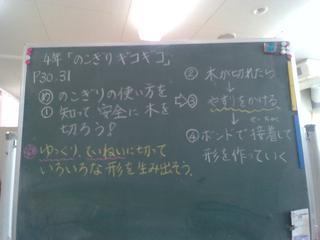 4年「のこぎりギコギコ」
P30.31
め のこぎりの使い方を
① 知って 安全に 木を
切ろう！
ゆっくり、ていねいに切って
いろいろな形を生み出そう。
② 木が切れたら
↓
⇨③ やすりをかける
↓
④ ボンドで接着して
形を作っていく